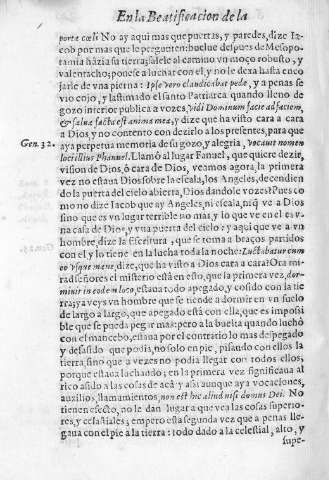 En la Beatificacion de la
portæ cœli No ay aqui mas que puertas, y paredes, dize Ia-
cob por mas que le pregunten: buelue despues de Mesopo-
tamia házia su tierra, salele al camino vn moço robusto, y
valentacho; ponese a luchar con el, y no le dexa hasta enco
jarle de vna pierna: Ipse vero claudicabat pede, y a penas se
vio cojo, y lastimado el santo Patriarca quando lleno de
gozo interior publica a vozes, vidi Dominum facie ad faciem,
& salua facta est anima mea, y dize que ha visto cara a cara
a Dios, y no contento con dezirlo a los presentes, para que
Gen. 32.
aya perpetua memoria de su gozo, y alegria, vocauit nomen
loci illius Phanuel. Llamó al lugar Fanuel, que quiere dezir,
vision de Dios, ò cara de Dios, veamos agora, la primera
vez no estaua Dios sobre la escala, los Angeles, decendien
do la puerta del cielo abierta, Dios dandole vozes? Pues co
mo no dize Iacob que ay Angeles, ni escala, ni que ve a Dios
sino que es vn lugar terrible no mas, y lo que ve en el es v-
na casa de Dios, y vna puerta del cielo: y aqui que ve a vn
hombre, dize la Escritura, que se toma a braços partidos
con el y lo tiene en la lucha toda la noche: Luctabatur cum
eo vsque mane, dize, que ha visto a Dios cara a cara? Ora mi-
rad señores el misterio está en esto, que la primera vez, dor-
miuit in eodem loco, estaua todo apegado, y cosido con la tie
rra; ya veys vn hombre que se tiende a dormir en vn suelo
de largo a largo, que apegado está con ella, que es imposi
ble que se pueda pegar mas: pero a la buelta quando luchò
con el mancebo, estaua por el contratio lo mas despegado
y desasido que podia, no solo en pie, pisando con ellos la
tierra, sino que a vezes no podia llegar con todos ellos,
porque estaua luchando; en la primera vez significaua al
rico asido a las cosas de acà y assi aunque aya vocaciones,
auxilios, llamamientos, non est hic aliud nisi domus Dei. No
tienen efecto, no le dan lugar a que vea las cosas superio-
res, y celestiales; empero esta segunda vez que a penas lle-
gaua con el pie a la tierra: todo dado a lo celestial, alto, y
supe-